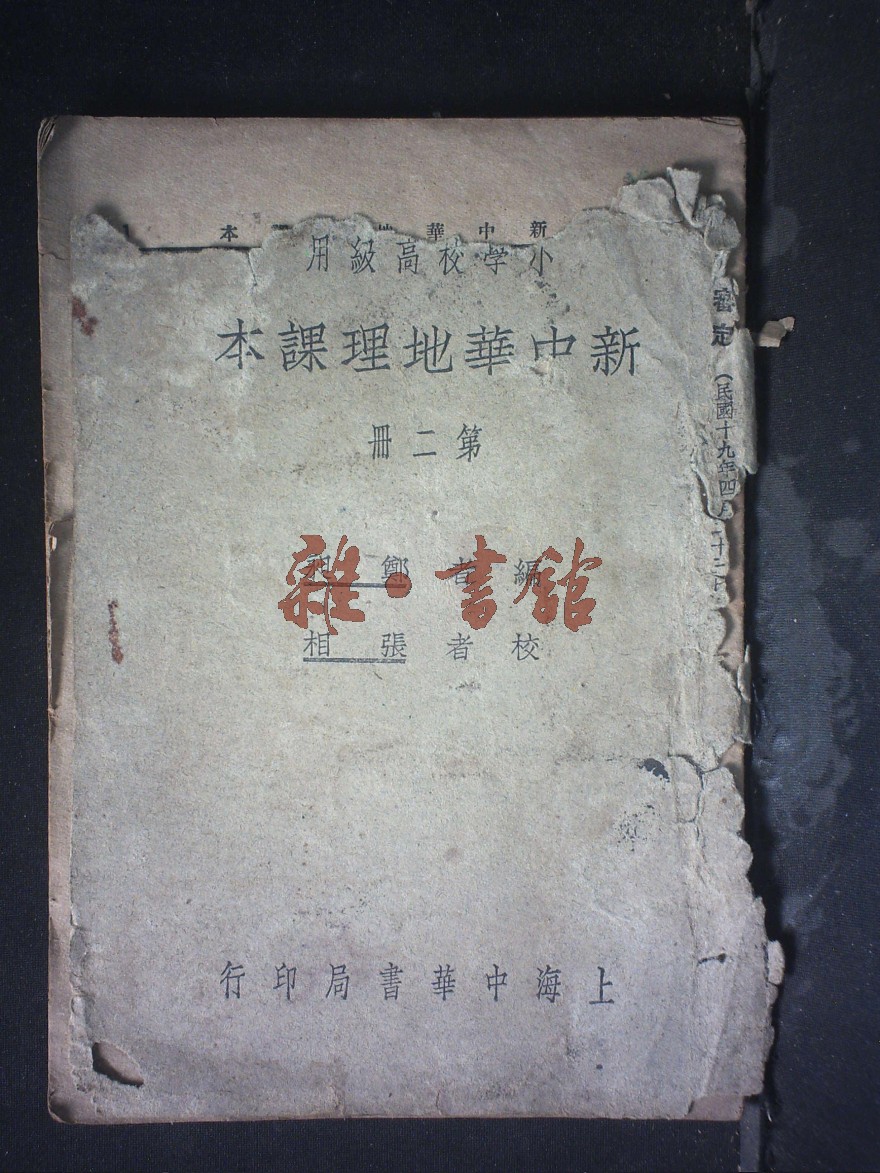 新中華 本
小学校高級用
新中華地理課本
第二冊
編者鄭
雜·書館
校者張相
上海中華書局印行
審定(民國十九年四月